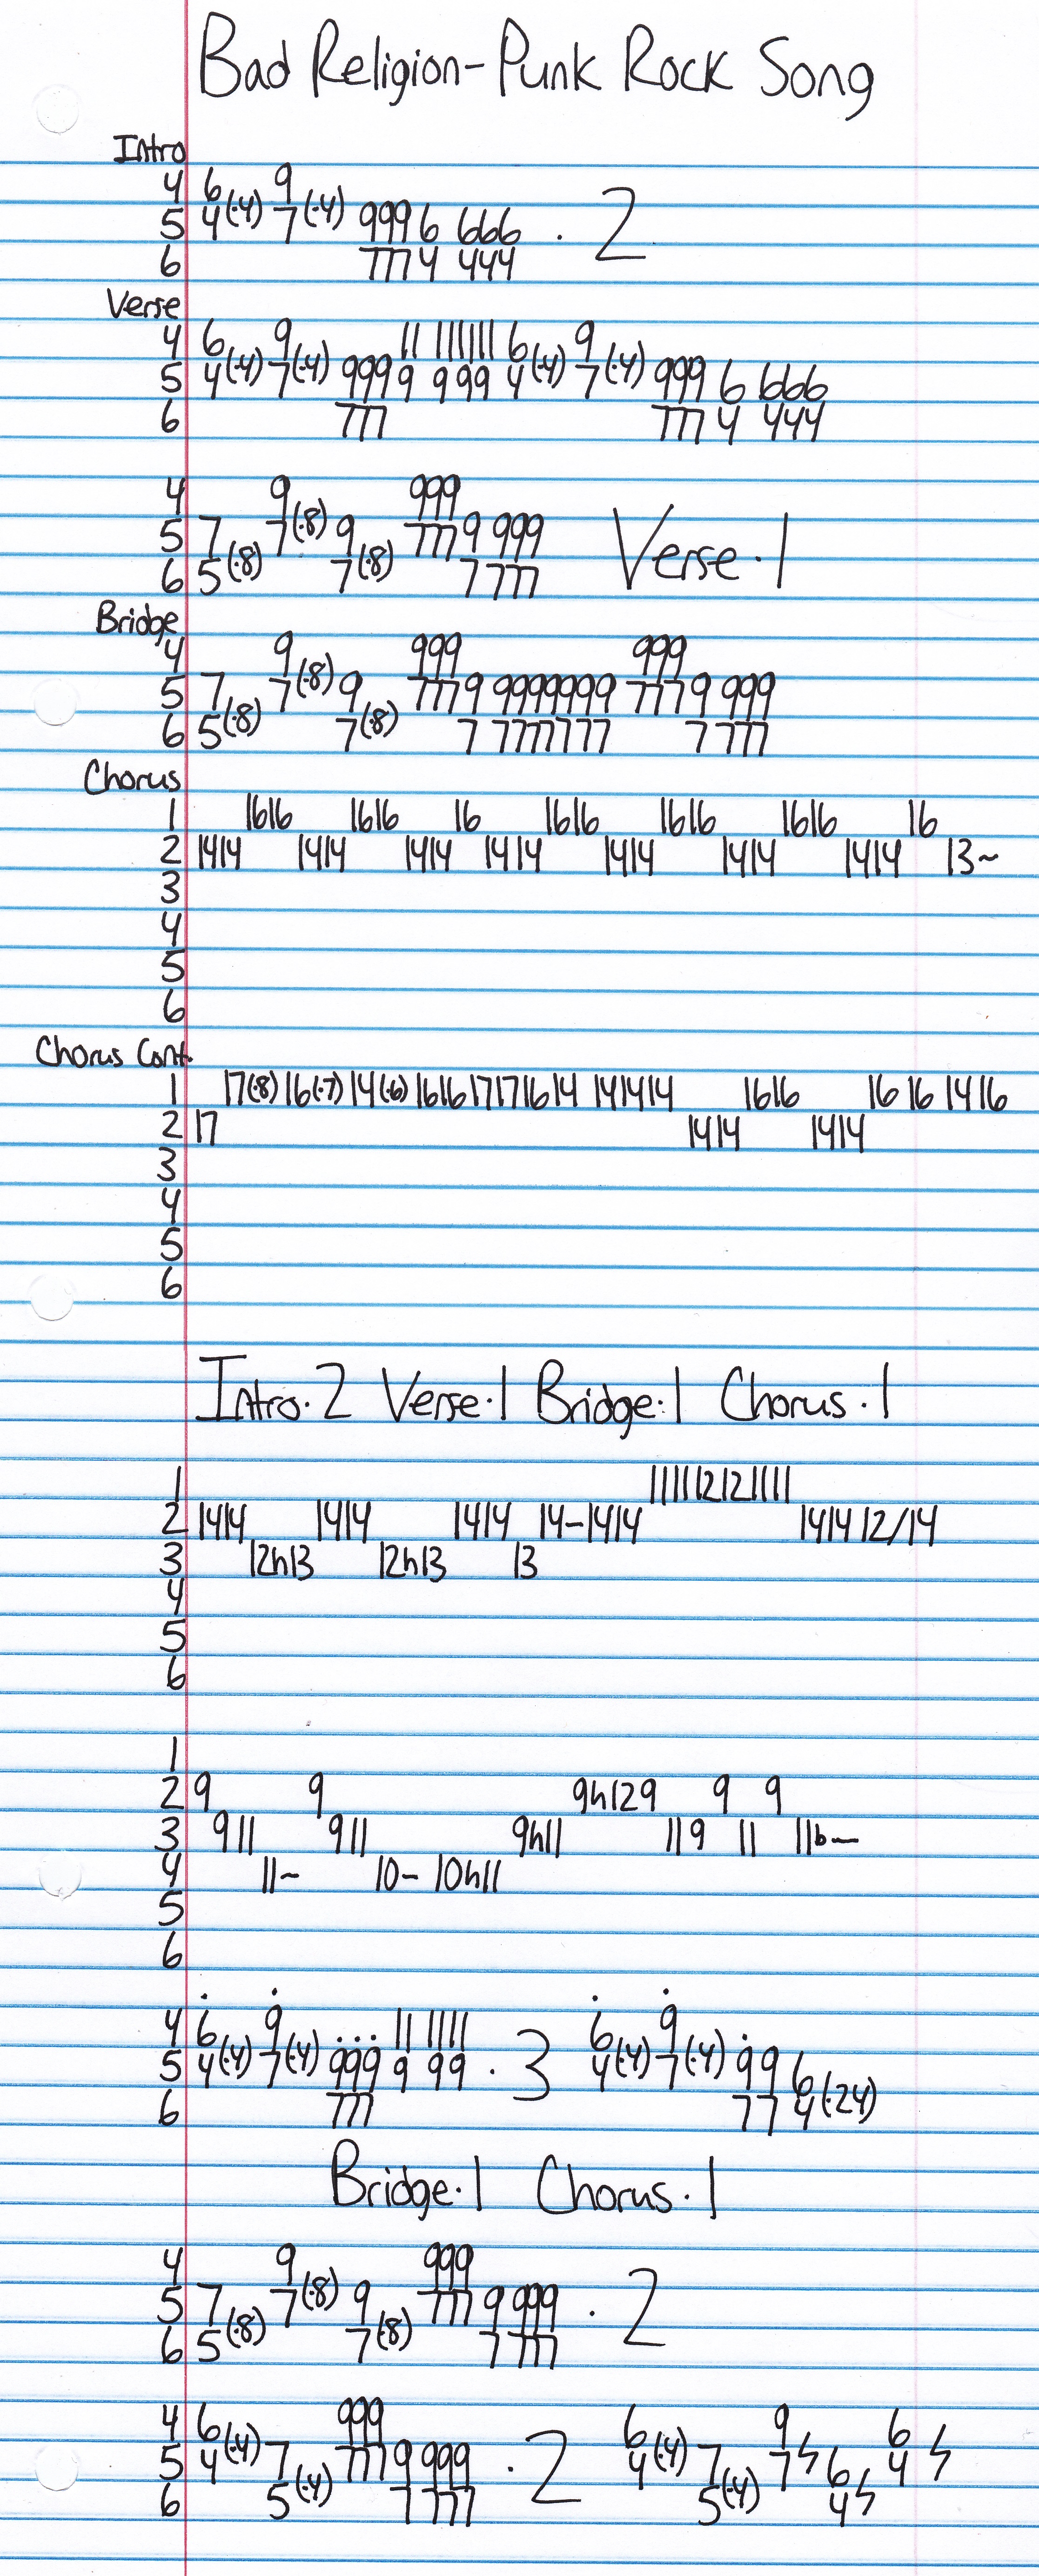 Bad Religion-Punk Rock Song
Intro
4 6(·4) 9
5 4 7(·4) 999 6 666 · 2
6 777 4 444
Verse
4 6(·4) 9 11 111111 6(·4) 9
5 4 7(·4) 999 9 999 4 7(·4) 999 6 666
6 777 777 4 444
4 9 999
5 7 7(·8) 9 777 9 999 Verse·1
6 5(·8) 7(·8) 7 777
Bridge
4 9 999 999
5 7 7(·8) 9 777 9 9999999 777 9 999
6 5(·8) 7(·8) 7 7777777 7 777
Chorus
1 1616 1616 16 1616 1616 1616 16
2 1414 1414 1414 1414 1414 1414 1414 13~
3
4
5
6
Chorus Cont.
1 17(·8) 16(·7) 14(·6) 1616 17171614 141414 1616 16 16 1416
2 17 1414 1414
3
4
5
6
Intro·2 Verse·1 Bridge·1 Chorus·1
1 1111111212 1111
2 1414 1414 1414 14-1414 1414 12/14
3 12h13 12h13 13
4
5
6
1
2 9 9 9h129 9 9
3 9 11 9 11 9h11 11 9 11 11b~
4 11~ 10~ 10h11
5
6
4 6(·4) 9 11 1111 6(·4) 9
5 4 7(·4) 999 9 99 · 3 4 7(·4) 99 6
6 777 77 4(·24)
Bridge·1 Chorus·1
4 9 999
5 7 7(·8) 9 777 9 999 · 2
6 5(·8) 7(·8) 7 777
4 6(·4) 999 6(·4) 9 6
5 4 7 777 9 999 · 2 4 7 7 6 4
6 5(·4) 7 777 5(·4) 4